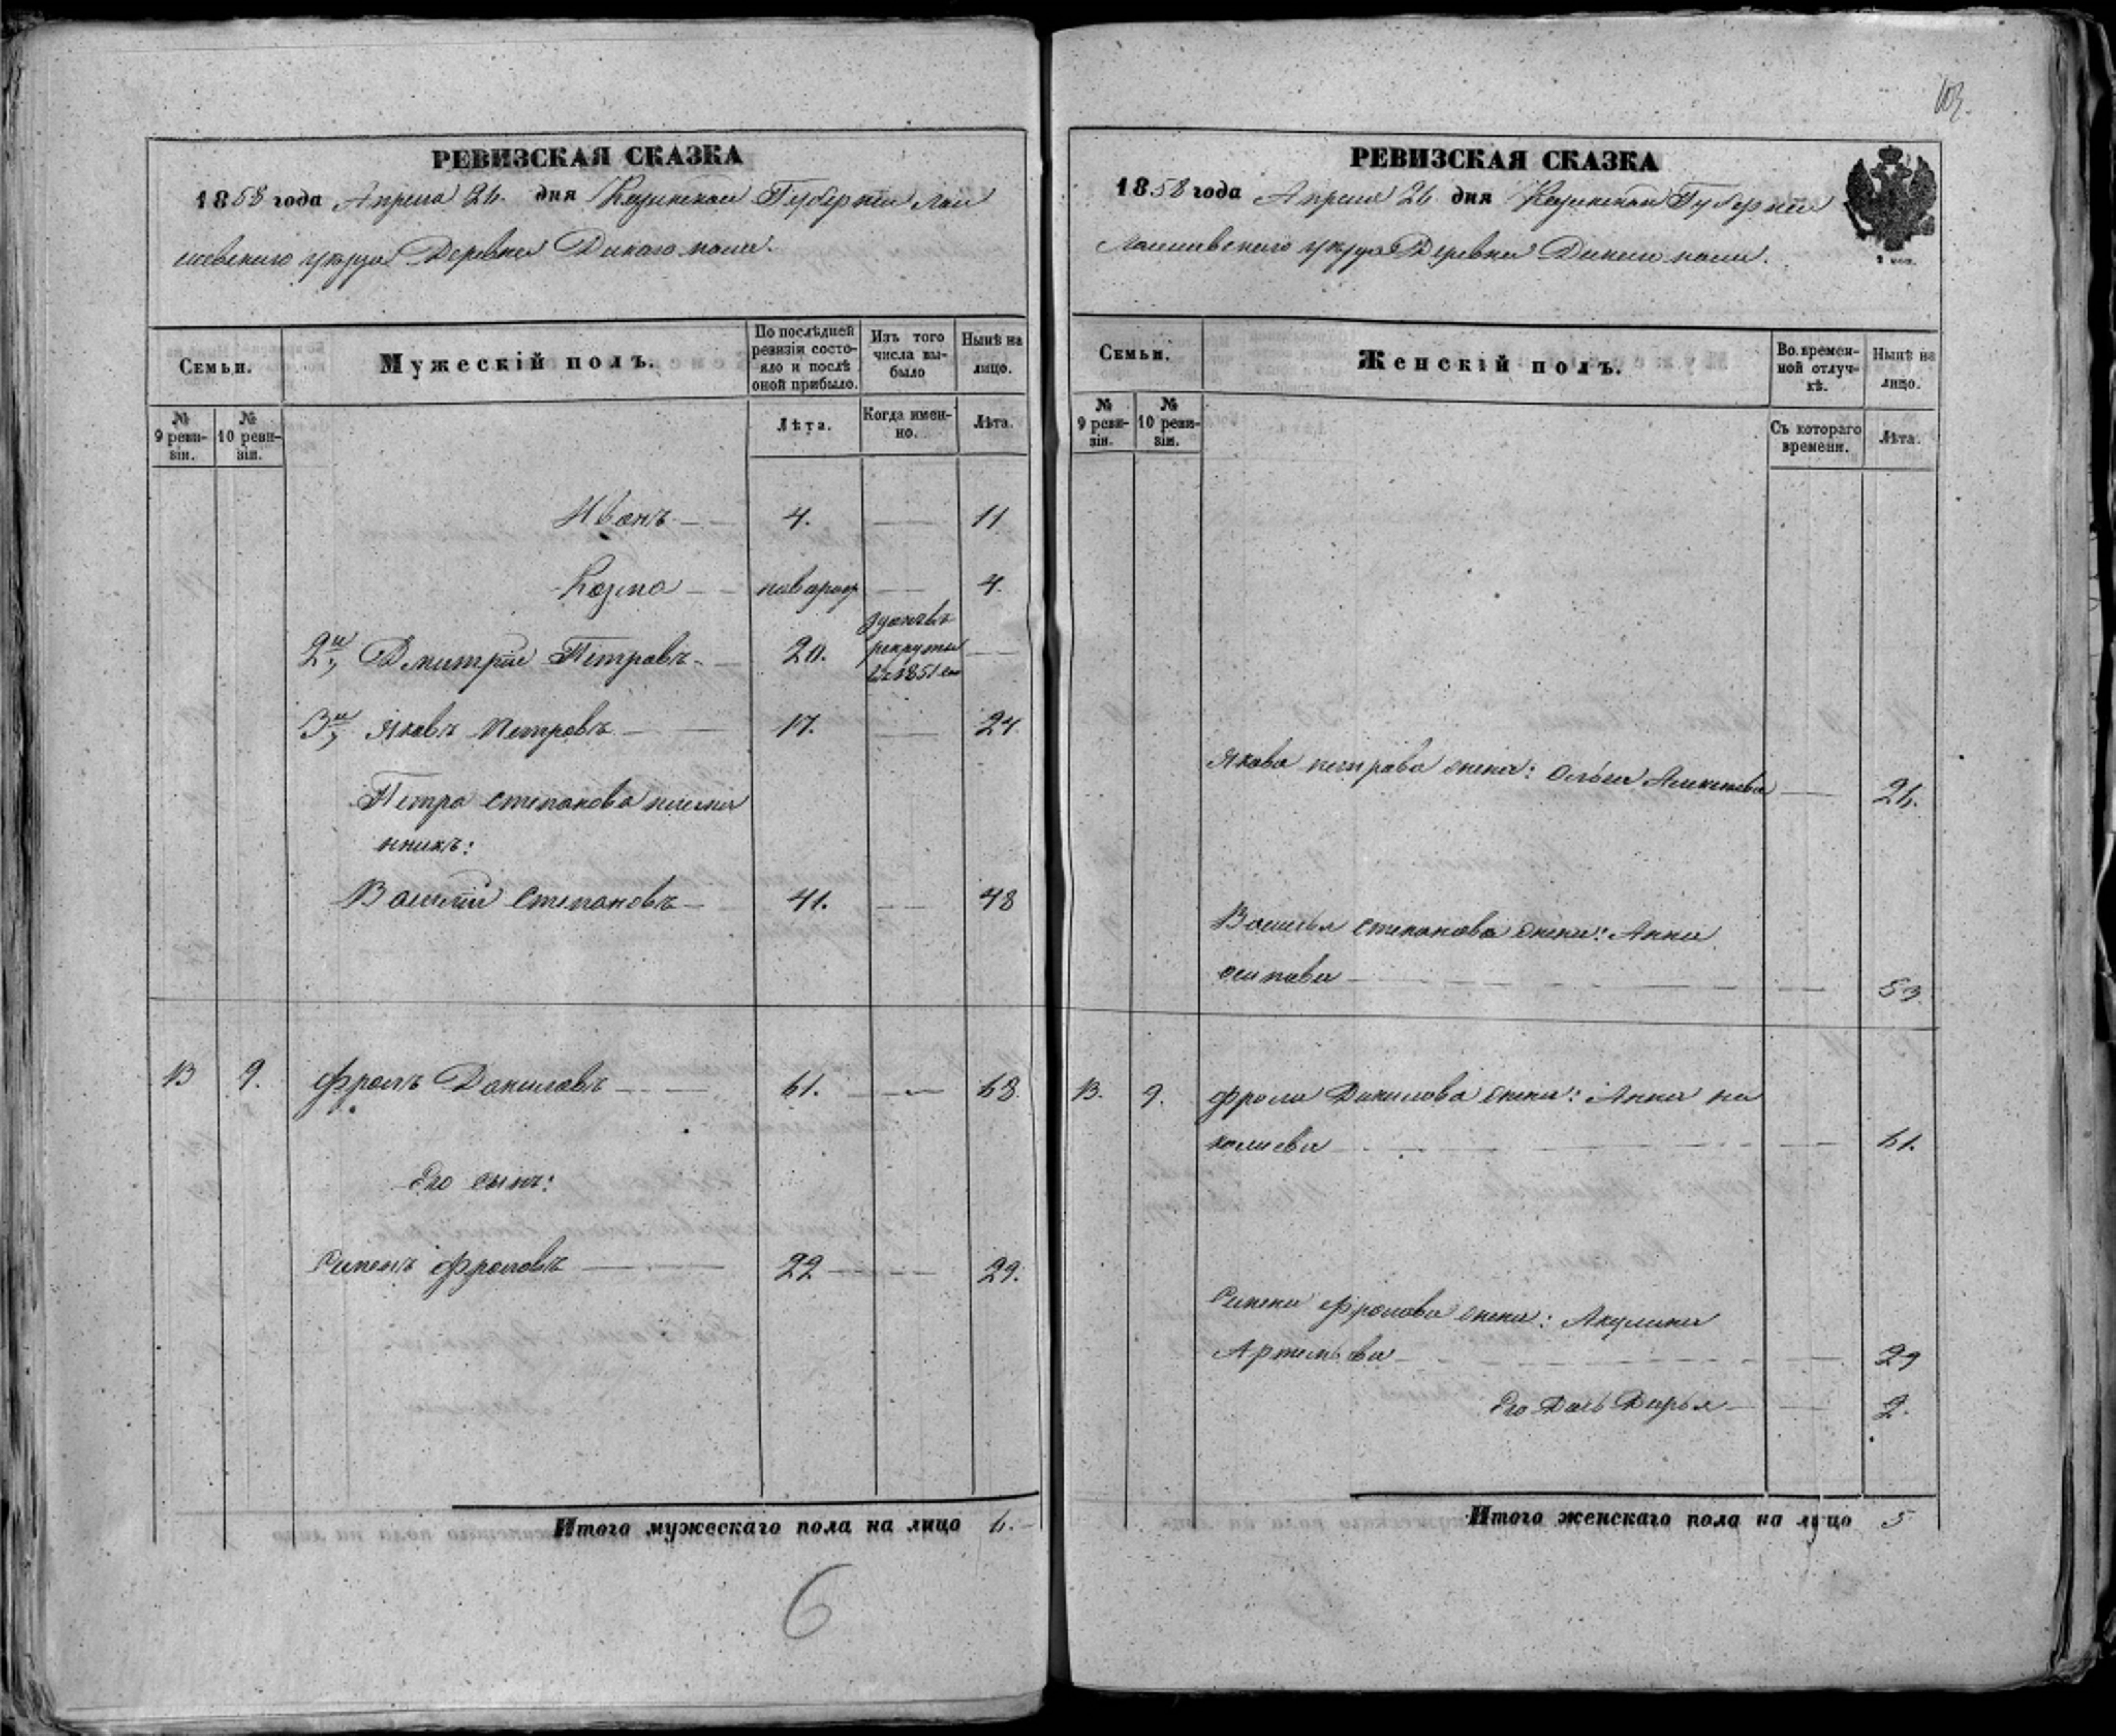 103.
РЕВИЗСКАЯ СКАЗКА
1858 года Апреля 26 дня Казанской Губерніи Лаи
шевскаго уѣзда Деревни Дикаго поля.
Семьи.
Мужескій полъ.
По послѣдней ревизіи состояло и послѣ оной прибыло.
Изъ того числа выбыло
Нынѣ на лицо.
№ 9 ревизіи.
№ 10 ревизіи.
Лѣта.
Когда именно.
Лѣта.
Иванъ 4. 11
Козма 4.
2й Дмитрій Петровъ 20. рекруты въ 1851
3й Яковъ Петровъ 17. 24
Петра Степанова племя
нникъ:
Василій Степановъ 41. 48
13 9. Фролъ Даниловъ 61. 68.
Его сынъ:
Симонъ Фроловъ 22 29.
Итого мужескаго пола на лицо 6.
6
РЕВИЗСКАЯ СКАЗКА
1858 года Апреля 26 дня Казанской Губерніи
Лаишевскаго уѣзда Деревни Дикаго поля.
2 коп.
Семьи.
Женскій полъ.
Во временной отлучкѣ.
Нынѣ на лицо.
№ 9 ревизіи.
№ 10 ревизіи.
Съ котораго времени.
Лѣта.
Якова Петрова жена: Ольга Алексѣева 26.
Василья Степанова жена: Анна
Осипова 53
13. 9. Фрола Данилова жена: Анна Ни
колаева 61.
Симона Фролова жена: Акулина
Артемьева 29
Его Дочь Дарья 2.
Итого женскаго пола на лицо 5